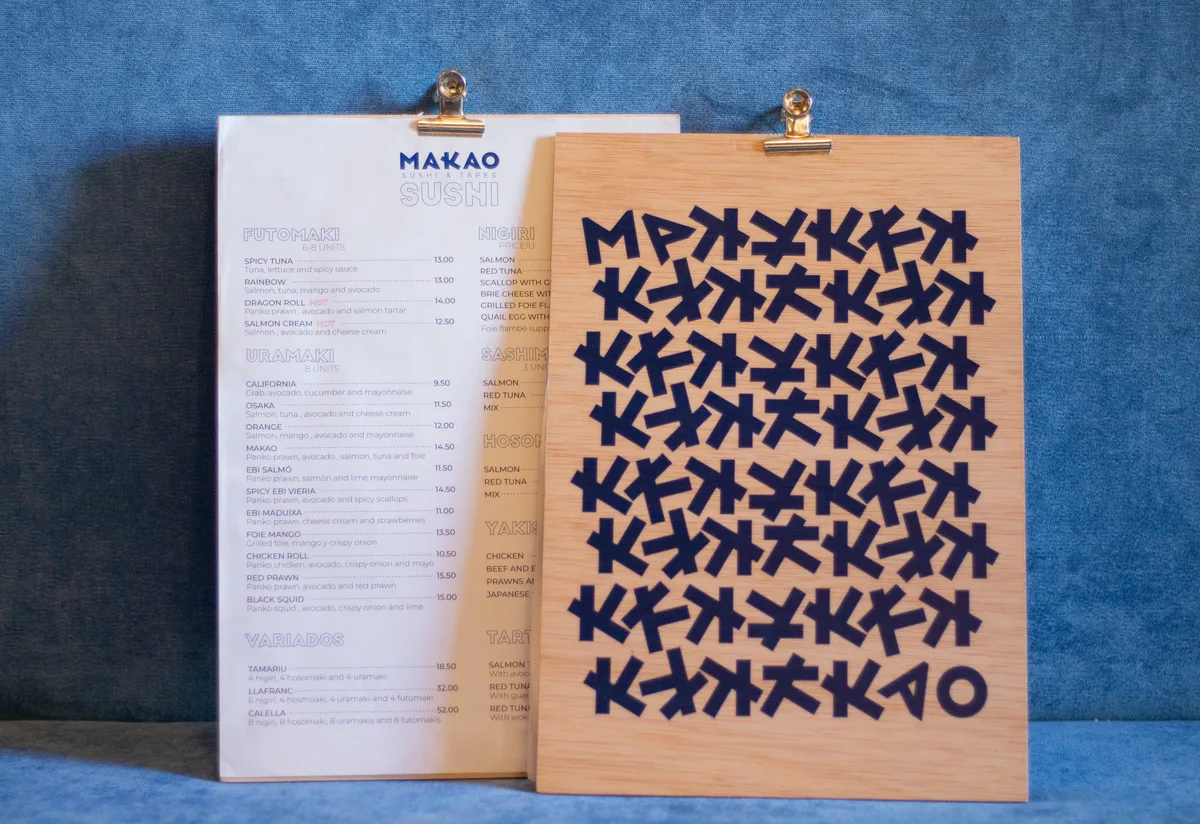 MAKAO
SUSHI & TAPES
SUSHI
FUTOMAKI
6-8 UNITS
SPICY TUNA 13.00
Tuna, lettuce and spicy sauce
RAINBOW 13.00
Salmon, tuna, mango and avocado
DRAGON ROLL HOT 14.00
Panko prawn, avocado and salmon tartar
SALMON CREAM HOT 12.50
Salmon, avocado and cheese cream
URAMAKI
8 UNITS
CALIFORNIA 9.50
Crab, avocado, cucumber and mayonnaise
OSAKA 11.50
Salmon, tuna, avocado and cheese cream
ORANGE 12.00
Salmon, mango, avocado and mayonnaise
MAKAO 14.50
Panko prawn, avocado, salmon, tuna and foie
EBI SALMÓ 11.50
Panko prawn, salmon and lime mayonnaise
SPICY EBI VIERIA 14.50
Panko prawn, avocado and spicy scallops
EBI MADUIXA 11.00
Panko prawn, cheese cream and strawberries
FOIE MANGO 13.50
Grilled foie, mango y crispy onion
CHICKEN ROLL 10.50
Panko chicken, avocado, crispy onion and mayo
RED PRAWN 15.50
Panko prawn, avocado and red prawn
BLACK SQUID 15.00
Panko squid, avocado, crispy onion and lime
VARIADOS
TAMARIU 18.50
4 nigiri, 4 hosomaki and 4 uramaki
LLAFRANC 32.00
6 nigiri, 4 hosomakis, 4 uramaki and 4 futomaki
CALELLA 52.00
8 nigiri, 8 hosomaki, 8 uramakis and 8 futomakis
NIGIRI
PRICE/U
SALMON
RED TUNA
SCALLOP WITH
BRIE CHEESE
GRILLED FOIE
QUAIL EGG WITH
Foie flambé
SASHIM
3 UNI
SALMON
RED TUNA
MIX
HOSOM
SALMON
RED TUNA
MIX
YAKIS
CHICKEN
BEEF AND
PRAWNS
JAPANESE
TART
SALMON
With
RED TUNA
With
RED TUN
With wok
MAKKKKK
KKKKKKK
KKKKKKK
KKKKKKK
KKKKKKK
KKKKKKK
KKKKKKK
KKKKKAO